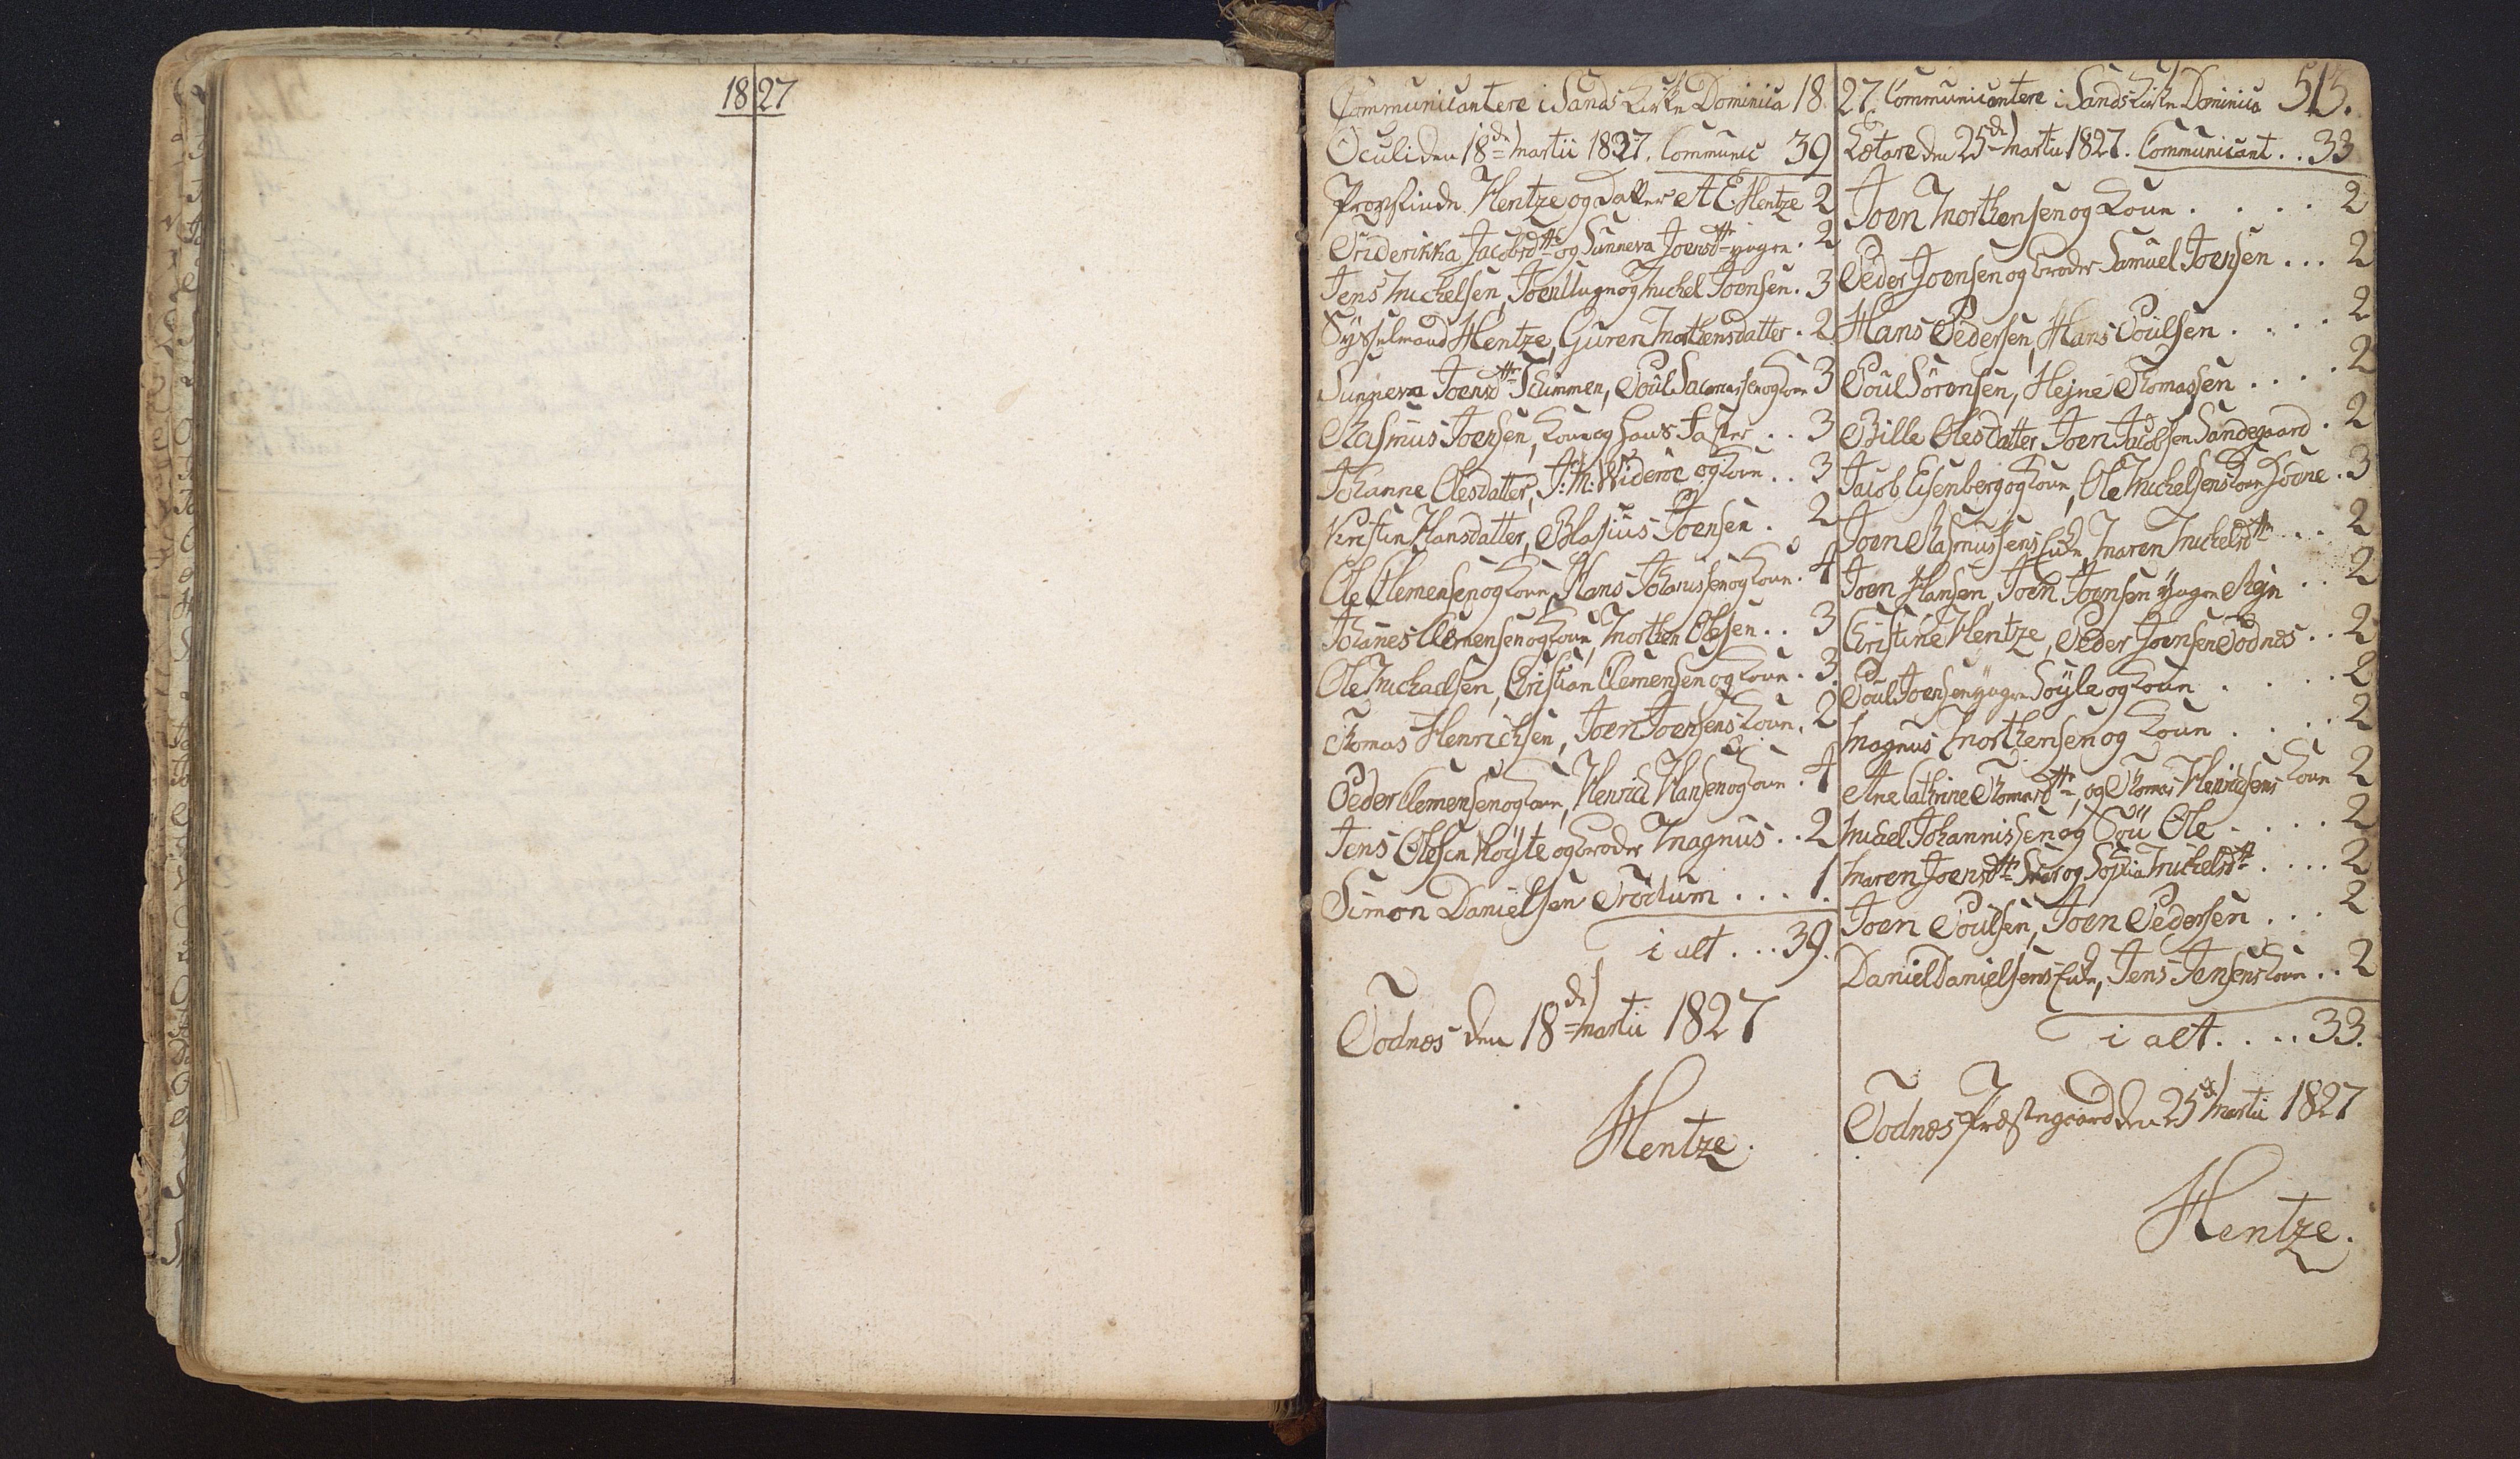 1827
Communicantere i Sands Kirke Dominica 18
Oculi den 18de Martii 1827. Communic 39
Provstinde Hentze og Datter A E Hentze 2
Friderikka Jacobsdttr og Sunneva Joensdttr yngre . 2
Jens Michelsen, Joen og Michel Joensen . 3
Sysselmand Hentze, Guren Morthensdatter . 2
Sunneva Joensdttr Skimmen, Poul og Kone 3
Rasmus Joensen, Kone og hans Faster . . 3
Johanne Olesdatter, J: M: Winderöe og Kone . . 3
Kirstin Hansdatter, Blasius Joensen . 2
Ole Clemensen og Kone, Hans Johanissen og Kone . 4
Johanes Clemensen og Kone, Morthen Olesen . . 3
Ole Michaelsen, Christian Clemensen og Kone . 3.
Thomas Henrichsen, Joen Joensens Kone . 2
Peder Clemensen og Kone, Henrich Hansen og Kone . 4
Jens Olesen Höyte og Broder Magnus . . 2
Simon Danielsen Trödum . . . 1.
i alt . . . 39.
Todnæs den 18de Martii 1827
Hentze.
27. Communicantere i Sands Kirke Dominica 513.
Lætare den 25de Martii 1827. Communicant . . 33
Joen Morthensen og Kone . . . . 2
Peder Joensen og Broder Samuel Joensen . . . 2
Hans Pedersen, Hans Poulsen . . . . 2
Poul Sörensen, Hejne Thomassen . . . . 2
Bille Olesdatter, Joen Jacobsen Sandegaard . 2
Jacob Eisenberg og Kone, Ole Michelsens Kone . 3
Joen Rasmussens Enke, Maren Michelsdttr . . . 2
Joen Hansen, Joen Joensen yngre . . 2
Christine Hentze, Peder Joensen Todnæs . . 2
Poul Joensen yngre og Kone . . . . 2
Magnus Morthensen og Kone . . . . 2
Ane Cathrine Thomasdttr, og Thomas Henrichsens Kone 2
Michel Johannissen og Ole . . . . 2
Maren Joensdttr og Sophia Michelsdttr . . . . 2
Joen Poulsen, Joen Pedersen . . . 2
Daniel Danielsens Enke, Jens Jensens Kone . . 2
i alt . . . . 33.
Todnæs Præstegaard den 25de Martii 1827
Hentze.